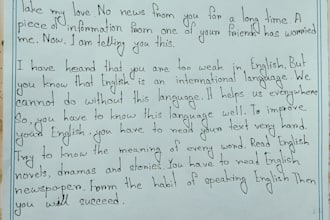 Take my love No news from you for a long time. A
piece of information from one of your friends has worried
me. Now. I am telling you this.
I have heard that you are too weak in English. But
you know that English is an international language. We
cannot do without this language. It helps us everywhere
So, you have to know this language well. To improve
your English. you have to read your text very hard.
Try to know the meaning of every word. Read English
novels, dramas and stories. You have to read English
newspaper. Form the habit of speaking English Then
you will succeed.